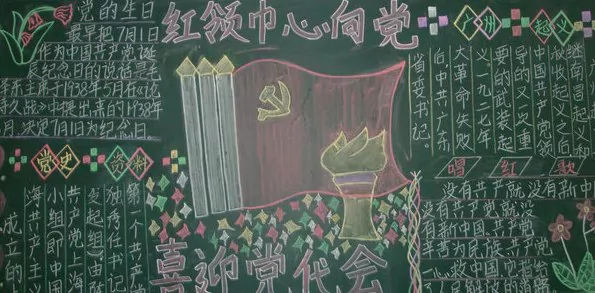 党的生日
最早把7月1日
作为中国共产党诞
辰纪念日的说法是毛
泽东主席于1938年5月在《论
持久战》中提出来的。1938年
决定7月1日为纪念日
党史资料
第一个共产
独秀任书记
发起组（由陈
小组（即中国
共产党上海
海共产主义
成立的上
红领巾心向党
喜迎党代会
广州起义
继南昌起义和
秋收起义之后
中国共产党领
导的又一次重
要的武装起
义一九二七年
大革命失败
后，中共广东
省委书记。
唱红歌
没有共产党就没有新中
没有共产党就没
有新中国，共产党
辛苦为民族，共产党
一心救中国，他指给
了人民解放的道路